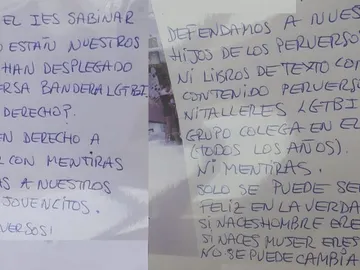 EL IES SABINAR
O ESTÁN NUESTROS
HAN DESPLEGADO
ERSA BANDERA LGTBI
DERECHO?.
EN DERECHO A
R CON MENTIRAS
AS A NUESTROS
JOVENCITOS.
VERSOS!
DEFENDAMOS A NUES
HIJOS DE LOS PERVERSO
NI LIBROS DE TEXTO CO
CONTENIDO PERVERS
NI TALLERES LGTBI
GRUPO COLEGA EN EL
(TODOS LOS AÑOS).
NI MENTIRAS.
SOLO SE PUEDE SE
FELIZ EN LA VERDA
SI NACES HOMBRE ERE
SI NACES MUJER ERES
NO SE PUEDE CAMBIA